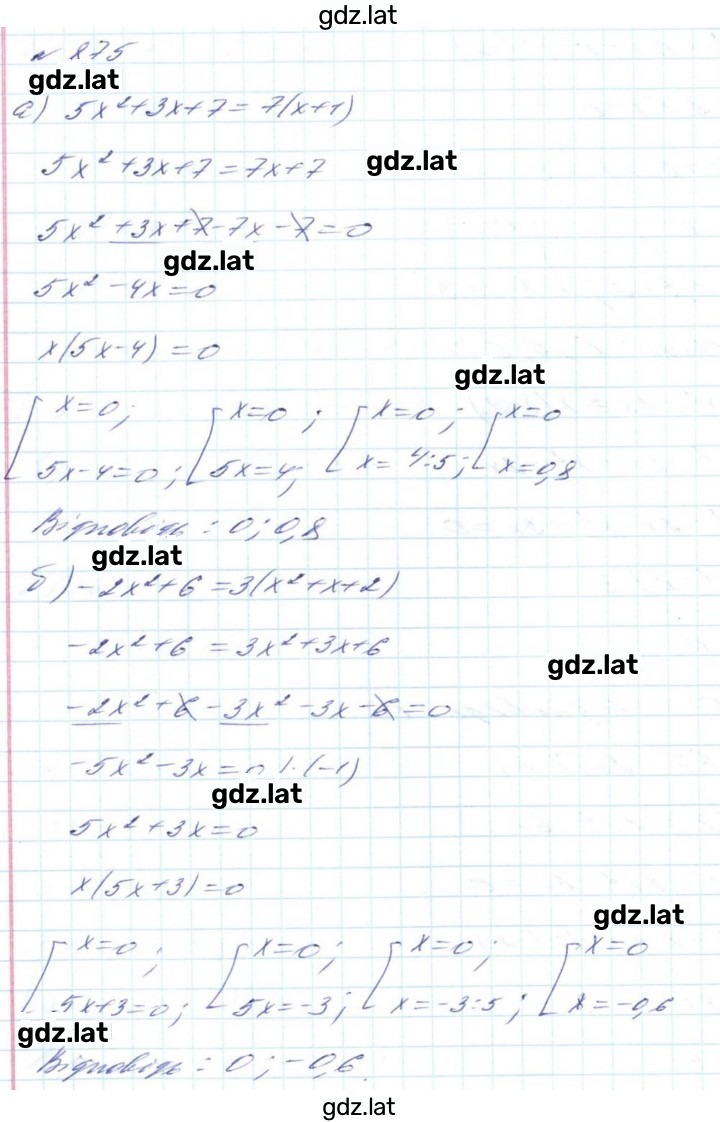 gdz.lat
№ 875
gdz.lat
а) 5x²+3x+7=7(x+1)
5x²+3x+7=7x+7
gdz.lat
5x²+3x+7-7x-7=0
gdz.lat
5x²-4x=0
x(5x-4)=0
gdz.lat
x=0; x=0; x=0; x=0
5x-4=0; 5x=4; x=4:5; x=0,8
Відповідь: 0; 0,8
gdz.lat
б) -2x²+6=3(x²+x+2)
-2x²+6=3x²+3x+6
gdz.lat
-2x²+6-3x²-3x-6=0
-5x²-3x=0 |·(-1)
gdz.lat
5x²+3x=0
x(5x+3)=0
gdz.lat
x=0; x=0; x=0; x=0
5x+3=0; 5x=-3; x=-3:5; x=-0,6
gdz.lat
Відповідь: 0; -0,6.
gdz.lat